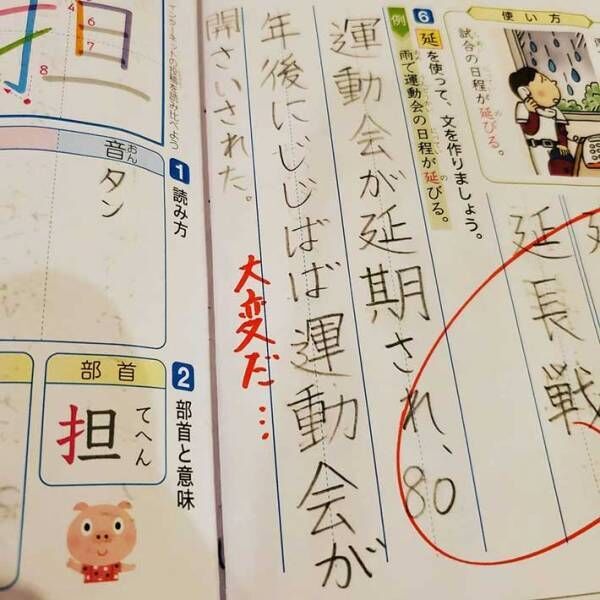 使い方
試合の日程が延びる。
6
延を使って、文を作りましょう。
例
雨で運動会の日程が延びる。
延長戦
運動会が延期され、80
年後にじじばば運動会が
開さいされた。
大変だ…
4
6
7
8
1 読み方
音 おん
タン
2 部首と意味
部首
担
てへん